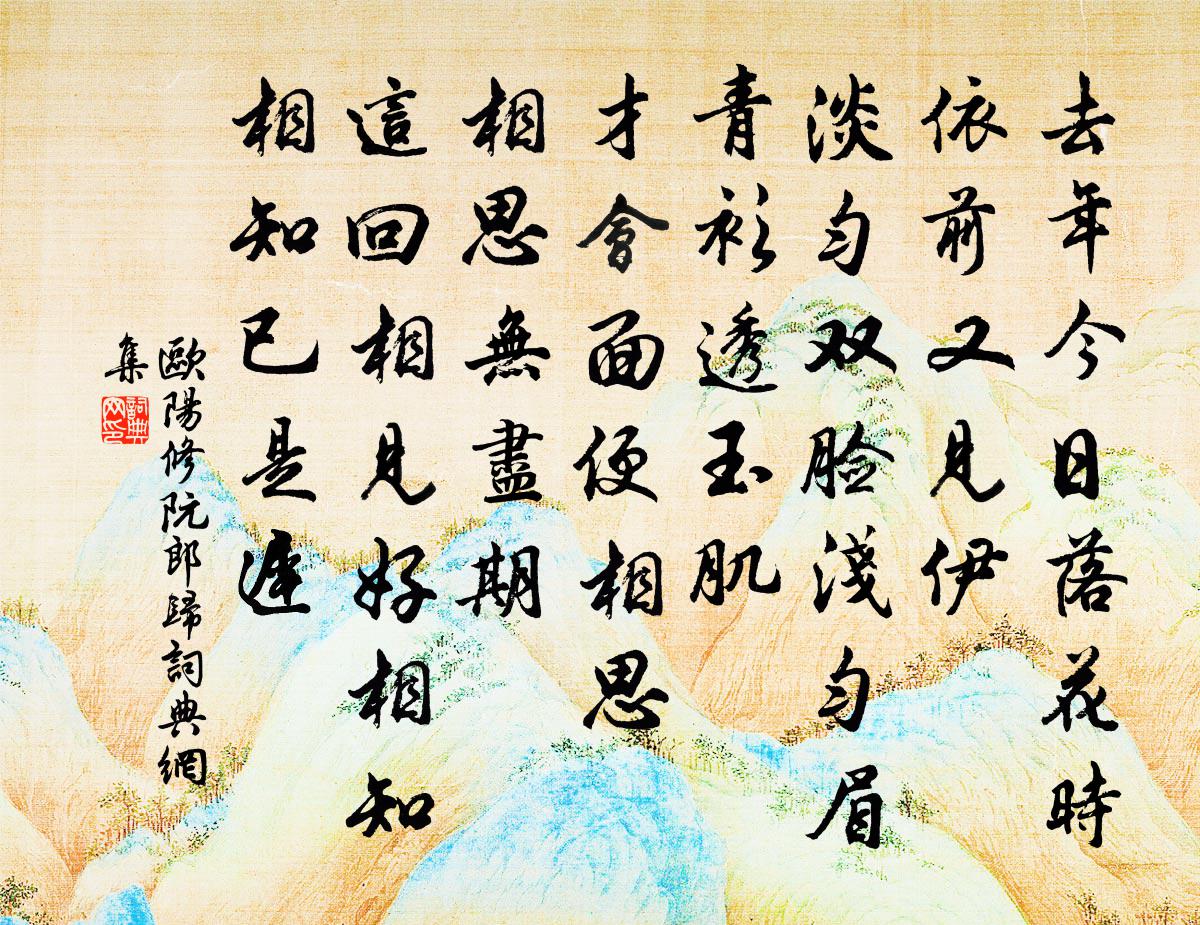 去年今日落花時
依前又見伊
淡勻双脸淺勻眉
青衫透玉肌
才會面便相思
相思無盡期
這回相見好相知
相知已是遲
歐陽修阮郎歸詞典網
集
詞典
网印